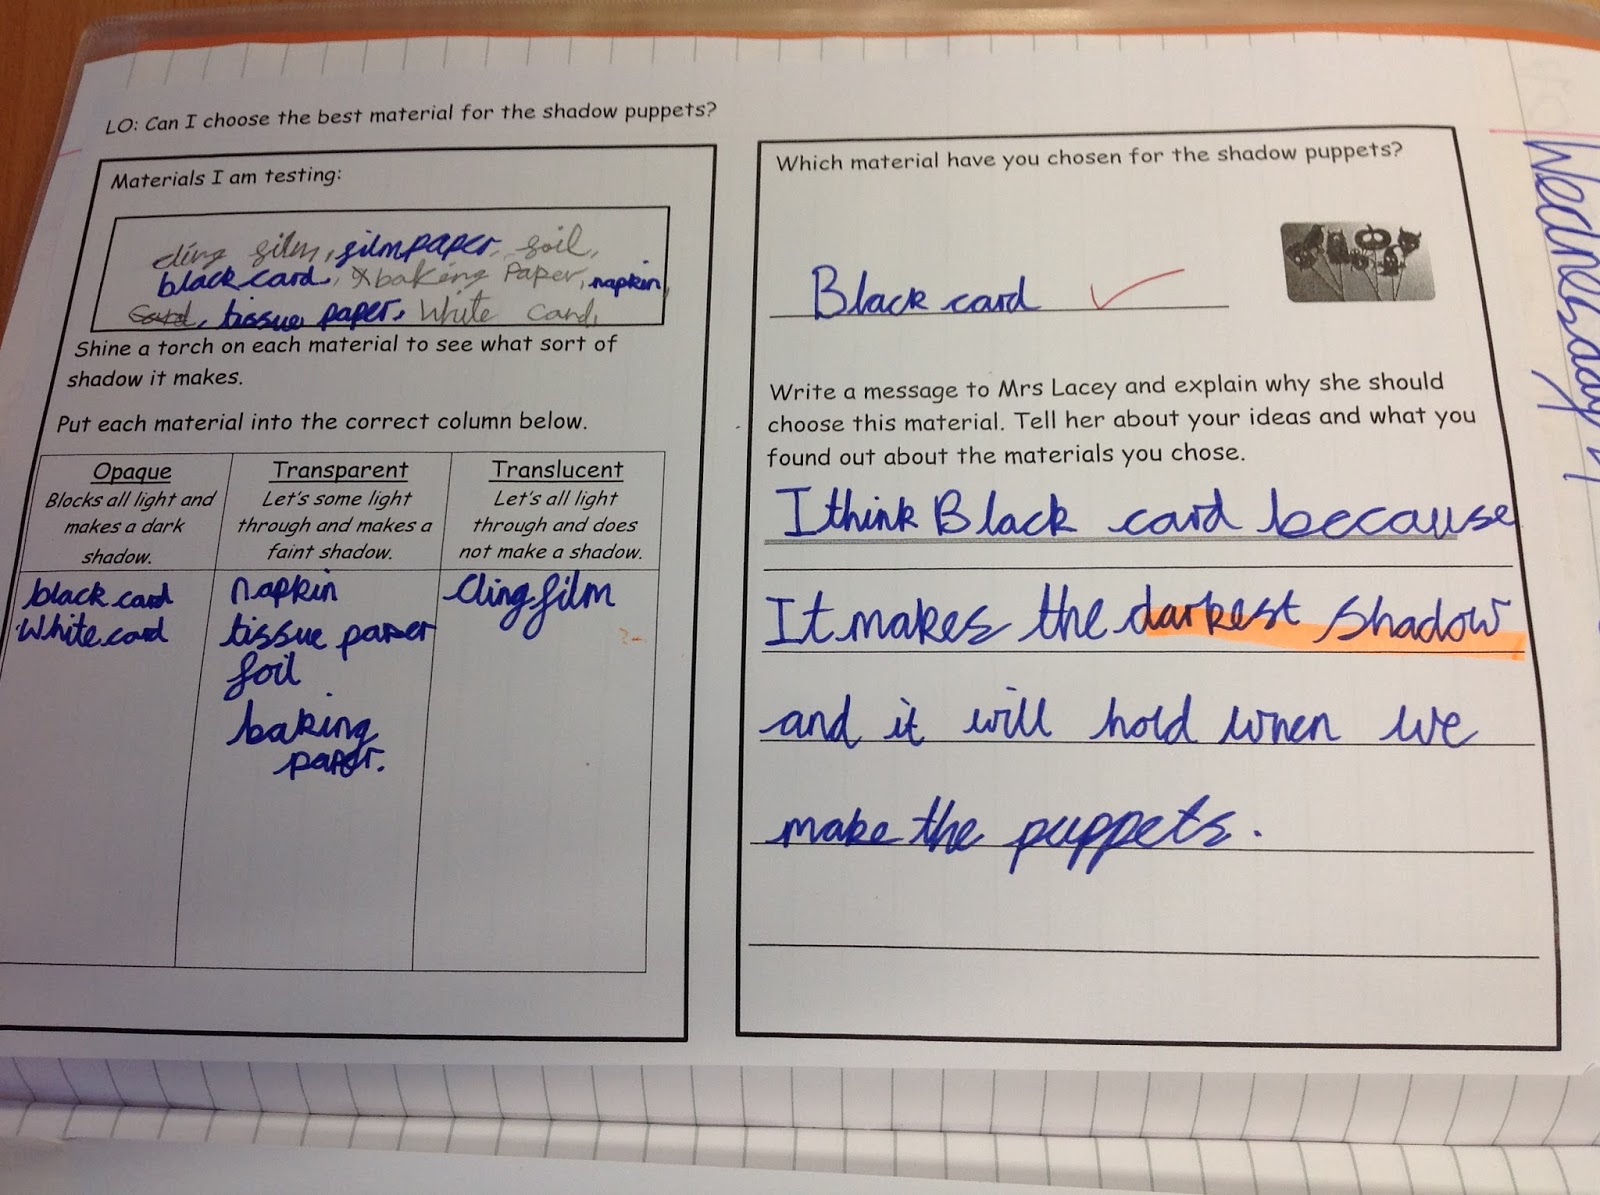 LO: Can I choose the best material for the shadow puppets?
Materials I am testing:
cling film, film paper, foil,
black card, baking Paper, napkin,
Card, tissue paper, White Card,
Shine a torch on each material to see what sort of
shadow it makes.
Put each material into the correct column below.
Opaque
Blocks all light and
makes a dark
shadow.
black card
White card
Transparent
Let's some light
through and makes a
faint shadow.
napkin
tissue paper
foil
baking
paper.
Translucent
Let's all light
through and does
not make a shadow.
Cling film
Which material have you chosen for the shadow puppets?
Black card
Write a message to Mrs Lacey and explain why she should
choose this material. Tell her about your ideas and what you
found out about the materials you chose.
I think Black card because
It makes the darkest shadow
and it will hold when we
make the puppets.
Wednesday